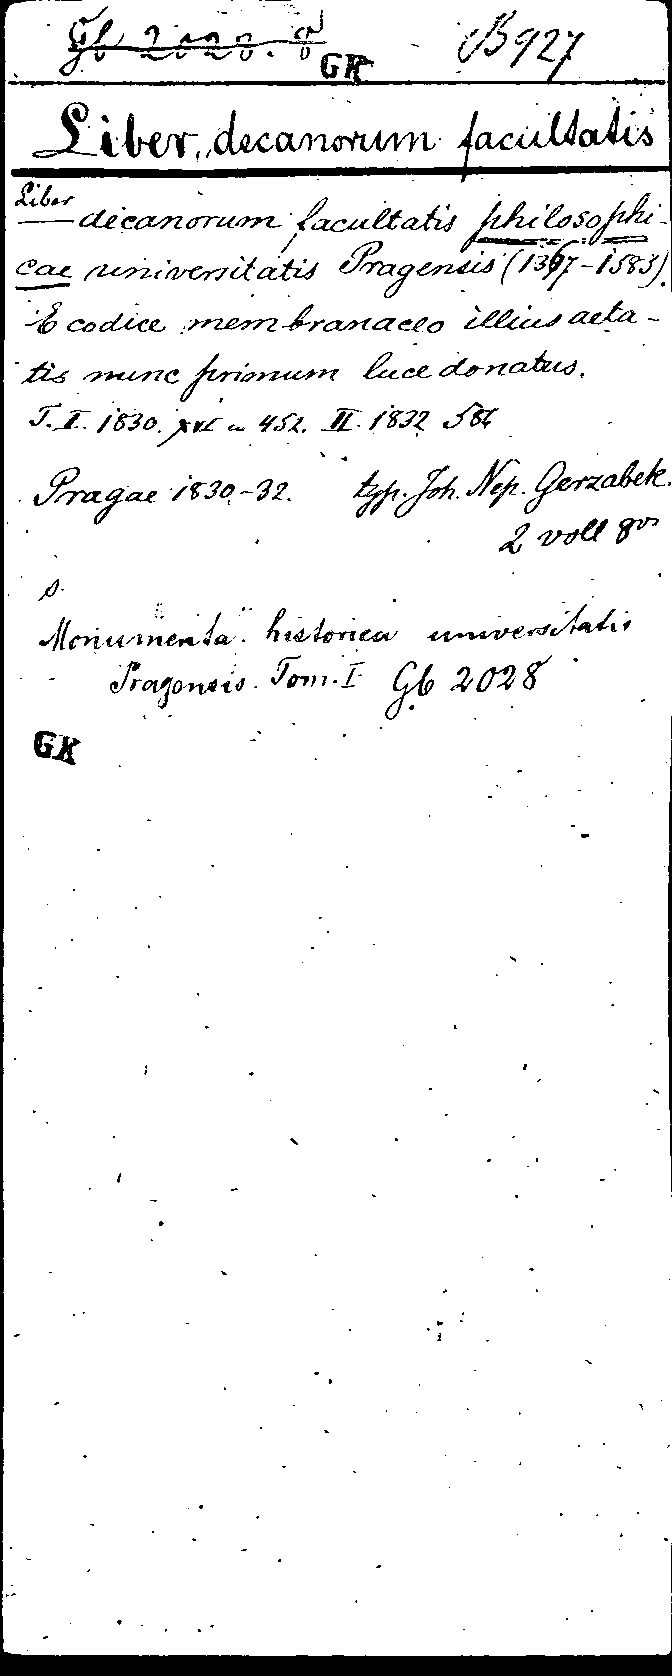 Gb 2028. 8
GK
B 927
Liber decanorum facultatis
Liber
— decanorum facultatis philosophi-
cae universitatis Pragensis (1367-1583).
E codice membranaceo illius aeta-
tis nunc primum luce donatus.
T. I. 1830. XVI u 452. II. 1832
Pragae 1830-32. typ. Joh. Nep. Gerzabek.
2 voll 8vo
s.
Monumenta historica universitatis
Pragensis. Tom. I Gb 2028
GK